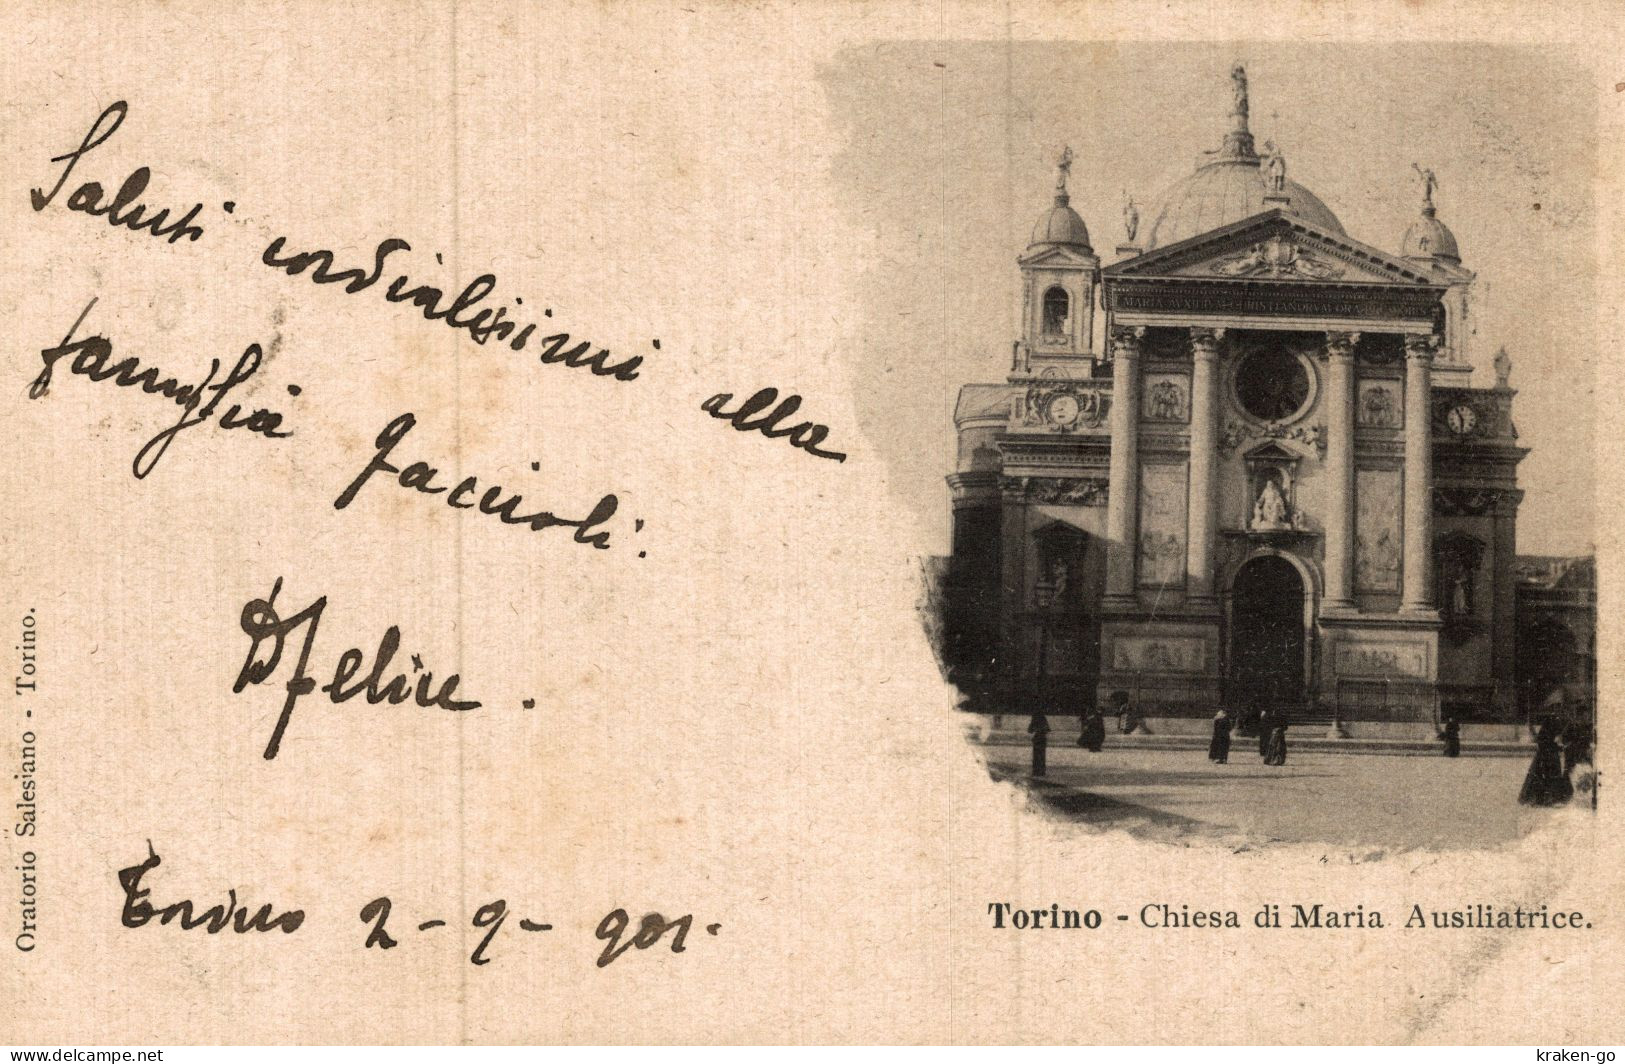 Saluti cordialissimi alla
famiglia Faccioli.
DFelice.
Torino 2-9-901.
Oratorio Salesiano - Torino.
MARIA AVXILIVM CHRISTIANORVM ORA PRO NOBIS
Torino - Chiesa di Maria Ausiliatrice.
delcampe.net
kraken-go